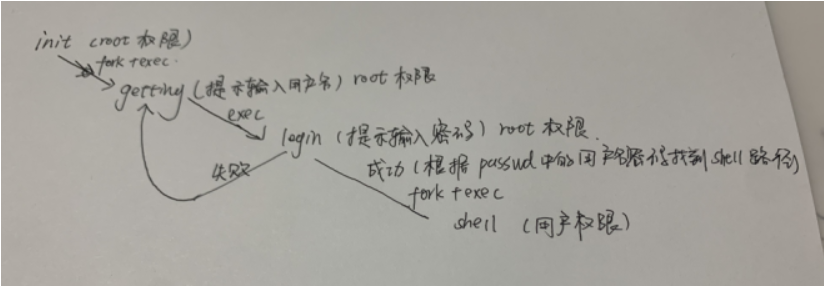 init (root 权限)
fork +exec.
getting (提示输入用户名) root 权限
exec
login (提示输入密码) root 权限.
失败
成功 (根据 passwd 中的用户名密码找到 shell 路径)
fork +exec
shell (用户权限)